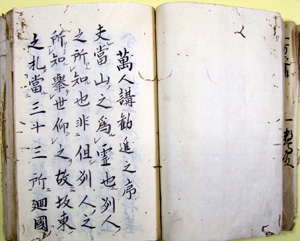 萬人講勸進之序
夫當山之為靈也別人
之所知也非但別人之
所知擧世仰之故坂東
之札當三十三所廻國